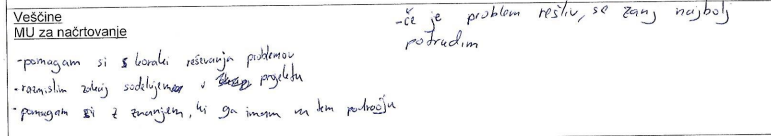 Veščine
MU za načrtovanje
-pomagam si s koraki reševanja problemov
-razmislim zakaj sodelujem v projektu
-pomagam si z znanjem, ki ga imam na tem področju
-če je problem rešljiv, se zanj najbolj
potrudim